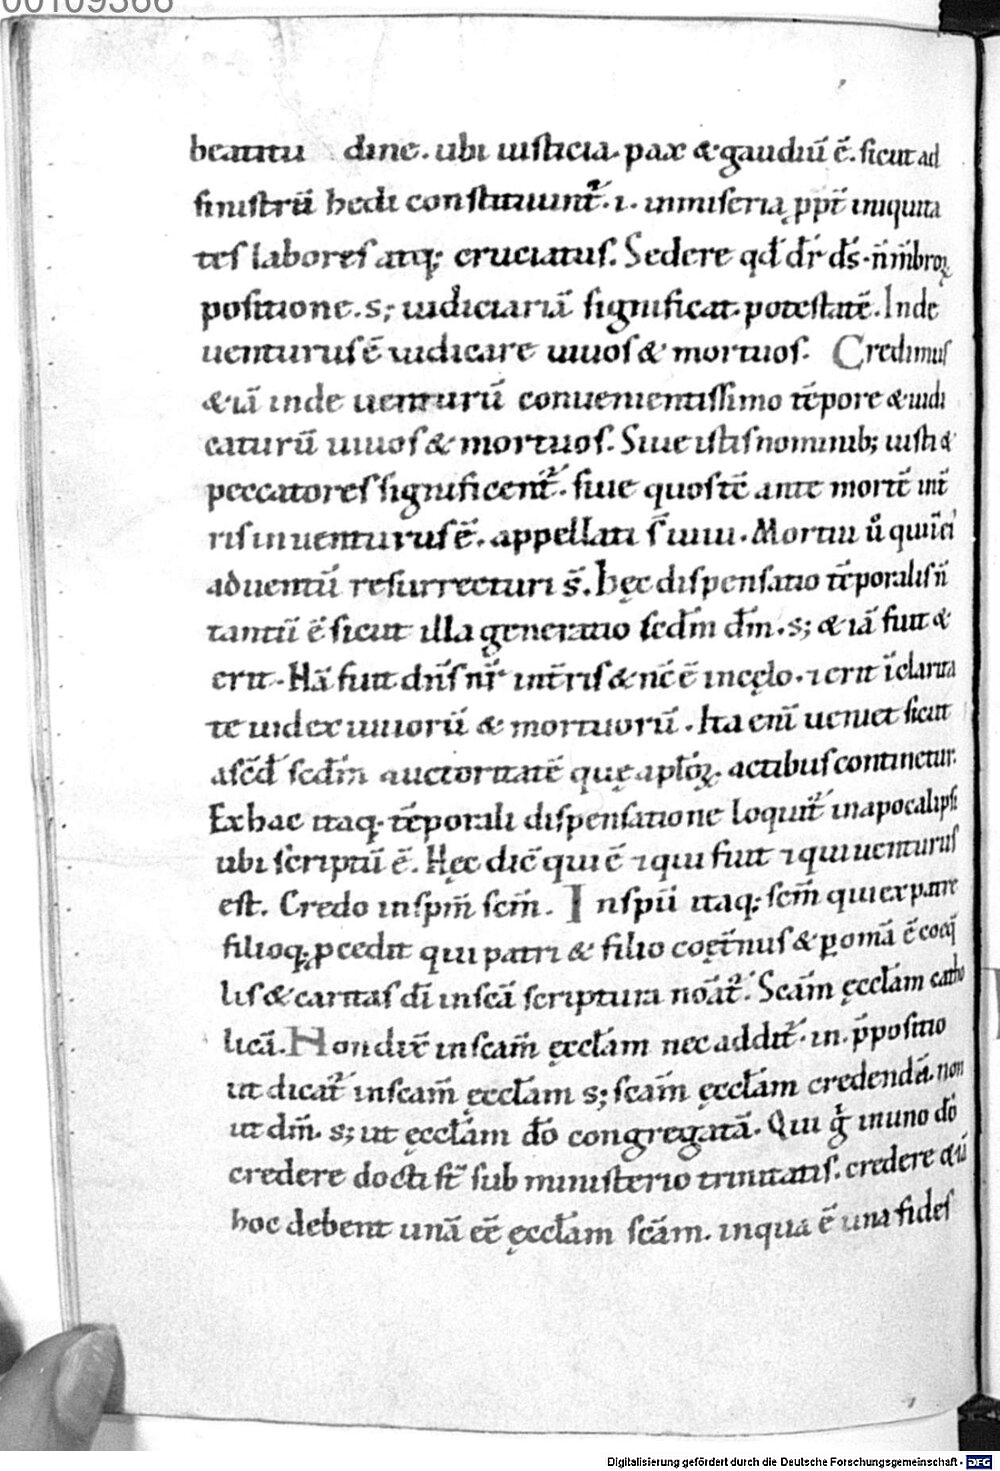 00109366
beatitu dine. ubi iusticia. pax & gaudiū ē. sicut ad
sinistrū hedi constituunt̄. i. in miseria ꝓpt̄ iniquita
tes labores atq; cruciatus. Sedere qd̄ dr̄ ds̄. n̄ m̄broꝝ
positione. s; iudiciariā significat potestatē. Inde
uenturus ē iudicare uiuos & mortuos. Credimus
& iā inde uenturū conuenientissimo tēpore & iudi
caturū uiuos & mortuos. Siue istis nominib; iusti &
peccatores significent̄. siue quos tē ante mortē int̄
ris inuenturus ē. appellati s̄ uiui. Mortui
aduentū resurrecturi s̄. hęc dispensatio tēporalis n̄
tantū ē sicut illa generatio scdm̄ dm̄. s; & iā fuit &
erit. Nā fuit dn̄s nr̄ int̄ris & nc̄ ē incęlo. ⁊ erit ī clarita
te iudex uiuorū & mortuorū. Ita enī ueniet sicut
ascd̄ scdm̄ auctoritatē quę apl̄oꝝ. actibus continetur.
Ex hac itaq; tēporali dispensatione loquit̄ in apocalipsi
ubi scriptū ē. Hęc dic̄ qui ē ⁊ qui fuit ⁊ qui uenturus
est. Credo in spm̄ scm̄. In spū itaq; scm̄ qui ex patre
filioq; ꝓcedit qui patri & filio coęt̄nus & ꝑ omā ē coęq̄
lis & caritas dī in scā scriptura noāt̄. Scām ęccl̄am catho
licā. Non dix̄ in scam̄ ęccl̄am nec addit̄. in. p̄positio
ut dicat̄ in scam̄ ęccl̄am s; scam̄ ęccl̄am credendā. non
ut dm̄. s; ut ęccl̄am dō congregatā. Qui g̊ in uno dō
credere docti st̄ sub ministerio trinitatis. credere & iā
hoc debent unā eē ęccl̄am scām. in qua ē una fides
Digitalisierung gefördert durch die Deutsche Forschungsgemeinschaft - DFG